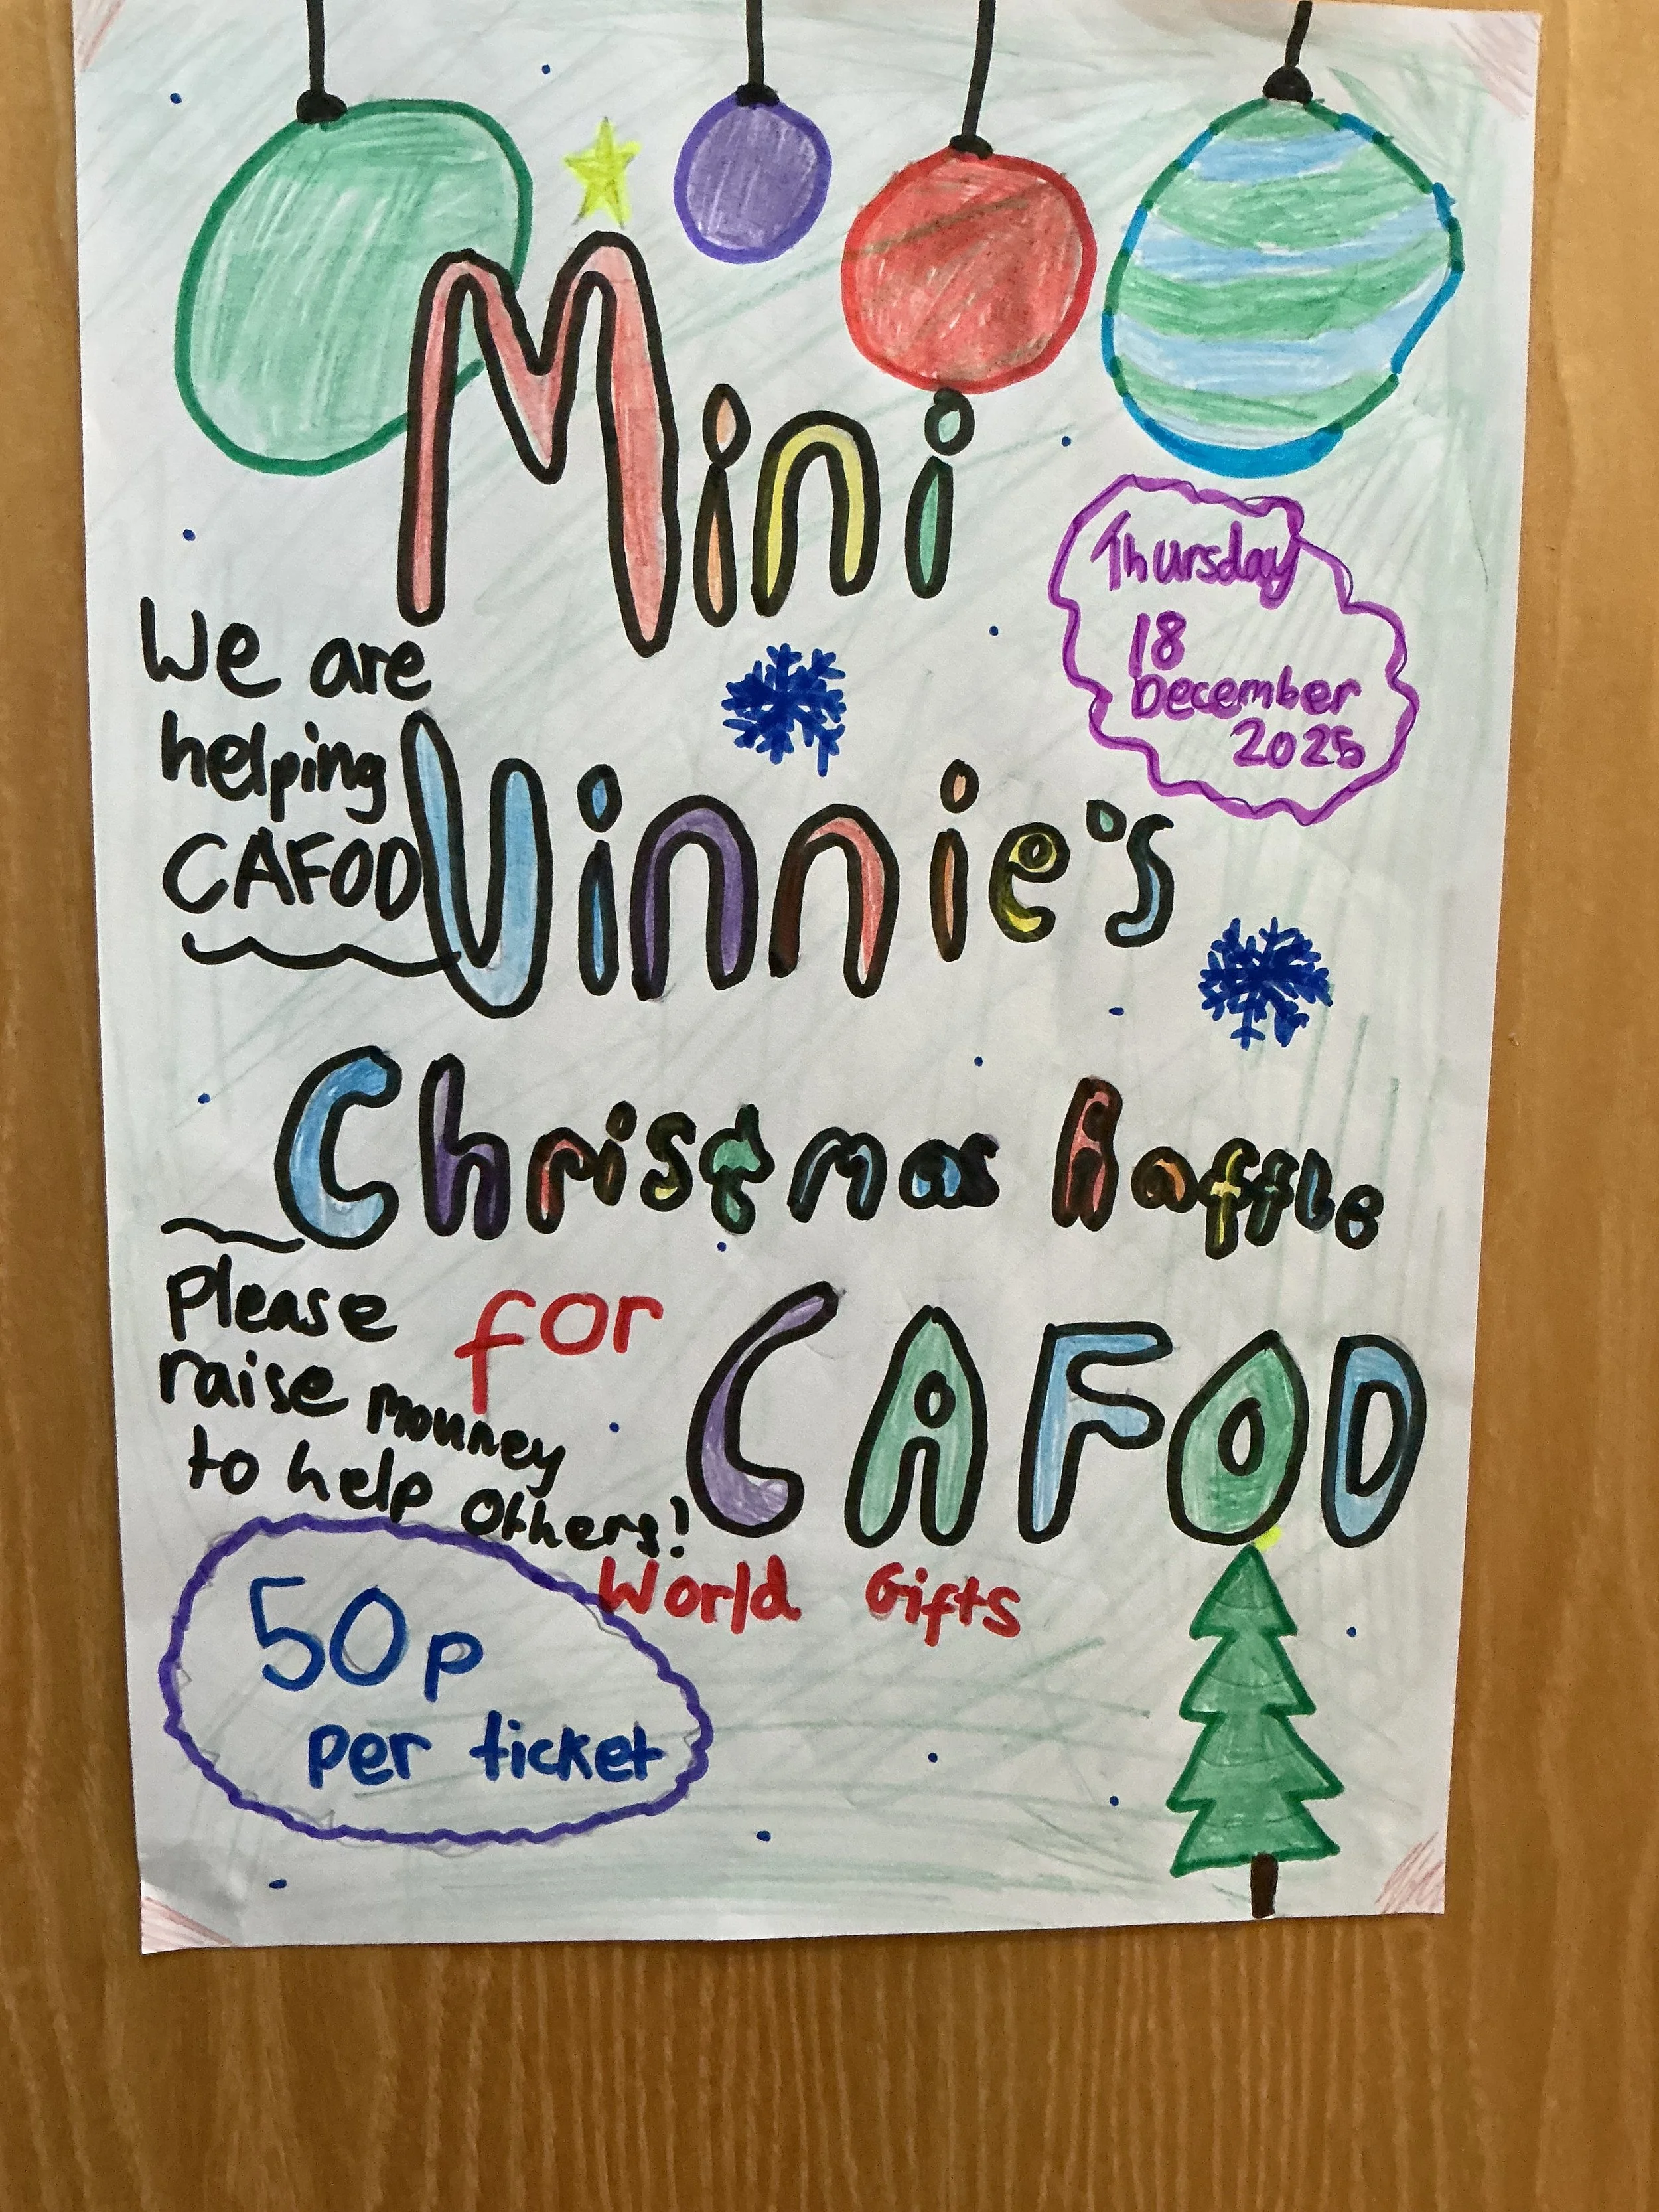 Mini
Thursday
18
December
2025
We are
helping
CAFOD
Vinnie's
Christmas Raffle
Please
raise mouney
to help others!
for CAFOD
World Gifts
50p
per ticket